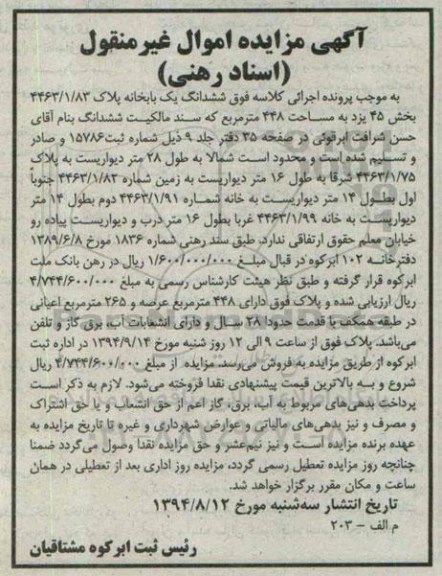 آگهی مزایده اموال غیرمنقول
(اسناد رهنی)
به موجب پرونده اجرائی کلاسه فوق ششدانگ یک بابخانه پلاک ۴۴۶۳/۱/۸۳
بخش ۴۵ یزد به مساحت ۴۴۸ مترمربع که سند مالکیت ششدانگ بنام آقای
حسن شرافت ابرقوئی در صفحه ۳۵ دفتر جلد ۹ ذیل شماره ثبت۱۵۷۸۶ و صادر
و تسلیم شده است و محدود است شمالا به طول ۲۸ متر دیواریست به پلاک
۴۴۶۳/۱/۷۵ شرقا به طول ۱۶ متر دیواریست به زمین شماره ۴۴۶۳/۱/۸۳ جنوباً
اول بطول ۱۴ متر دیواریست به خانه شماره ۴۴۶۳/۱/۹۱ دوم بطول ۱۴ متر
دیواریست به خانه ۴۴۶۳/۱/۹۹ غربا بطول ۱۶ متر درب و دیواریست پیاده رو
خیابان معلم حقوق ارتفاقی ندارد. طبق سند رهنی شماره ۱۸۳۶ مورخ ۱۳۸۹/۶/۸
دفترخانه ۱۰۲ ابرکوه در قبال مبلغ ۱/۶۰۰/۰۰۰/۰۰۰ ریال در رهن بانک ملت
ابرکوه قرار گرفته و طبق نظر هیئت کارشناس رسمی به مبلغ ۴/۷۴۴/۶۰۰/۰۰۰
ریال ارزیابی شده و پلاک فوق دارای ۴۴۸ مترمربع عرصه و ۲۶۵ مترمربع اعیانی
در طبقه همکف با قدمت حدود ۲۸ سال و دارای انشعابات آب، برق گاز و تلفن
می‌باشد. پلاک فوق از ساعت ۹ الی ۱۲ روز شنبه مورخ ۱۳۹۴/۹/۱۴ در اداره ثبت
ابرکوه از طریق مزایده به فروش می‌رسد. مزایده از مبلغ ۴/۷۴۴/۶۰۰/۰۰۰ ریال
شروع و به بالاترین قیمت پیشنهادی نقدا فروخته می‌شود. لازم به ذکر است
پرداخت بدهی‌های مربوط به آب، برق، گاز اعم از حق انشعاب و یا حق اشتراک
و مصرف و نیز بدهی‌های مالیاتی و عوارض شهرداری و غیره تا تاریخ مزایده به
عهده برنده مزایده است و نیز نیم‌عشر و حق مزایده نقدا وصول می‌گردد ضمنا
چنانچه روز مزایده تعطیل رسمی گردد، مزایده روز اداری بعد از تعطیلی در همان
ساعت و مکان مقرر برگزار خواهد شد.
تاریخ انتشار سه‌شنبه مورخ ۱۳۹۴/۸/۱۲
م الف - ۲۰۳
رئیس ثبت ابرکوه مشتاقیان